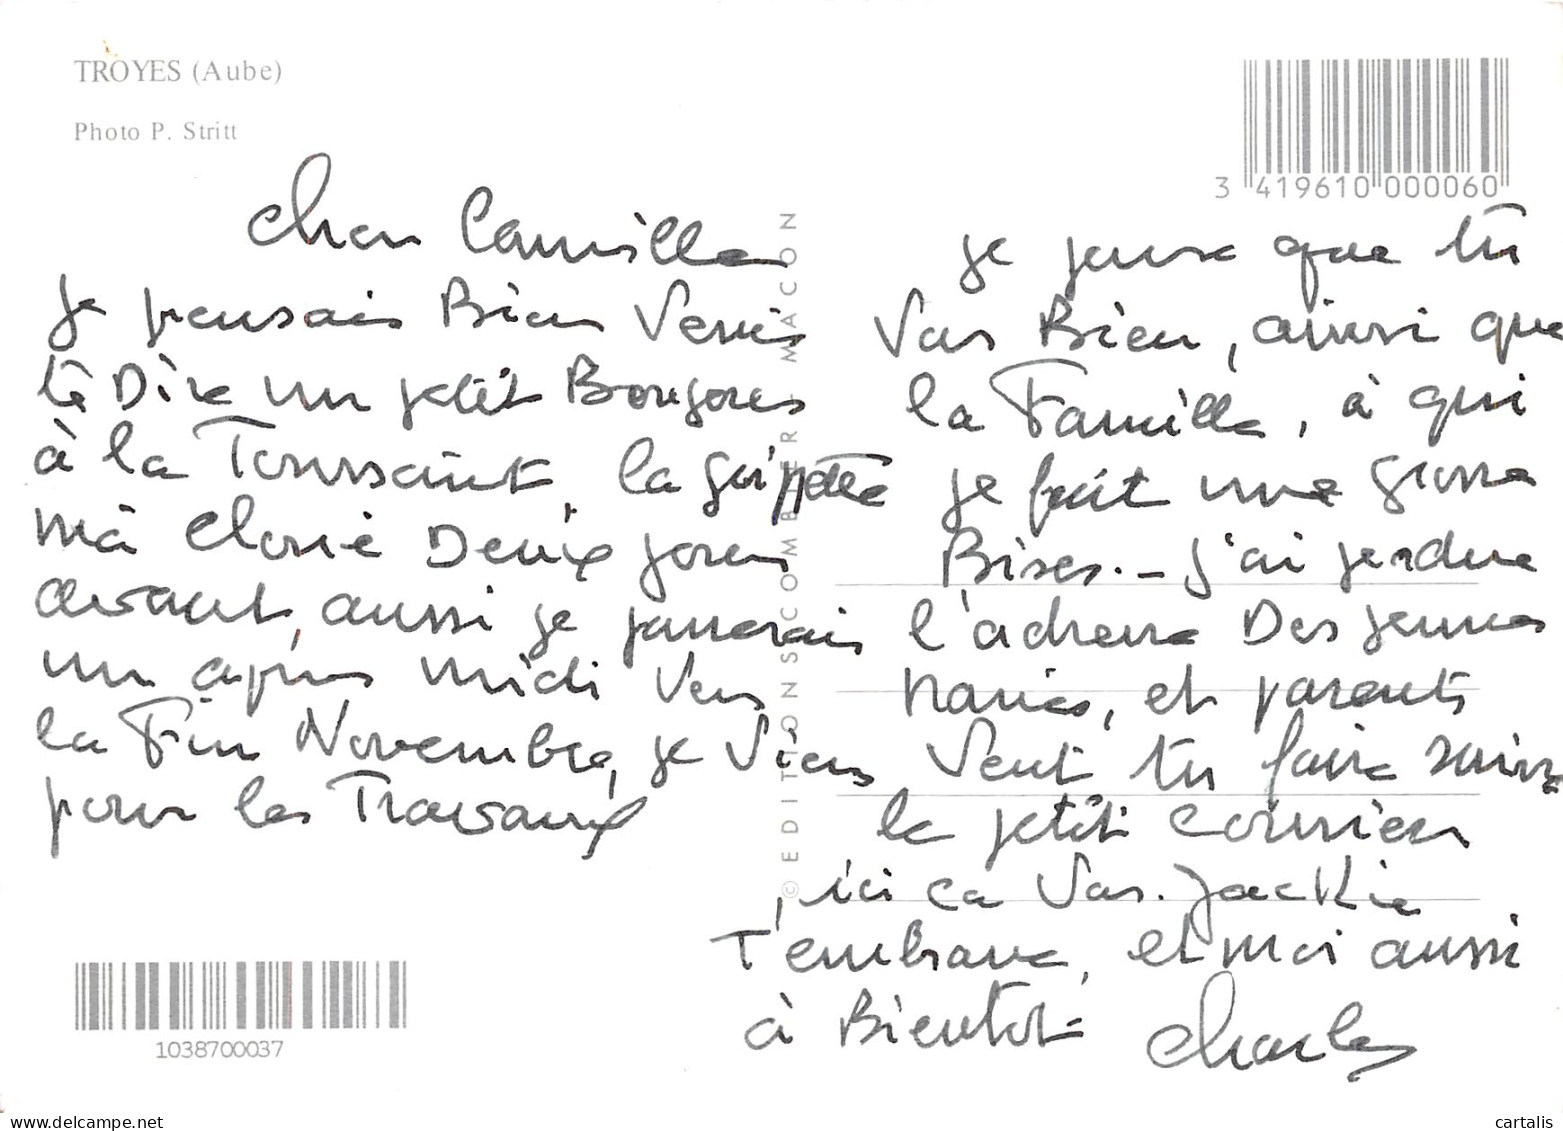 TROYES (Aube)
Photo P. Stritt
3 419610 000060
Cher Camille
Je pensais Bien Venir
te Dire un petit Bonjour
à la Toussaint, la Grippe
ma cloué Deux jours
avant, aussi je passerais
un après midi Vers
la Fin Novembre, je Viens
pour les Travaux
je pense que tu
Vas Bien, ainsi que
la Famille, à qui
je fait une grosse
Bises. - J'ai perdue
l'adresse Des jeunes
mariés, et parents
Veut tu faire suivre
le petit courrier
, ici ca Vas. Jackie
T'embrasse, et moi aussi
à Bientot
Charles
© EDITIONS COMBIER MACON
1038700037
cartalis